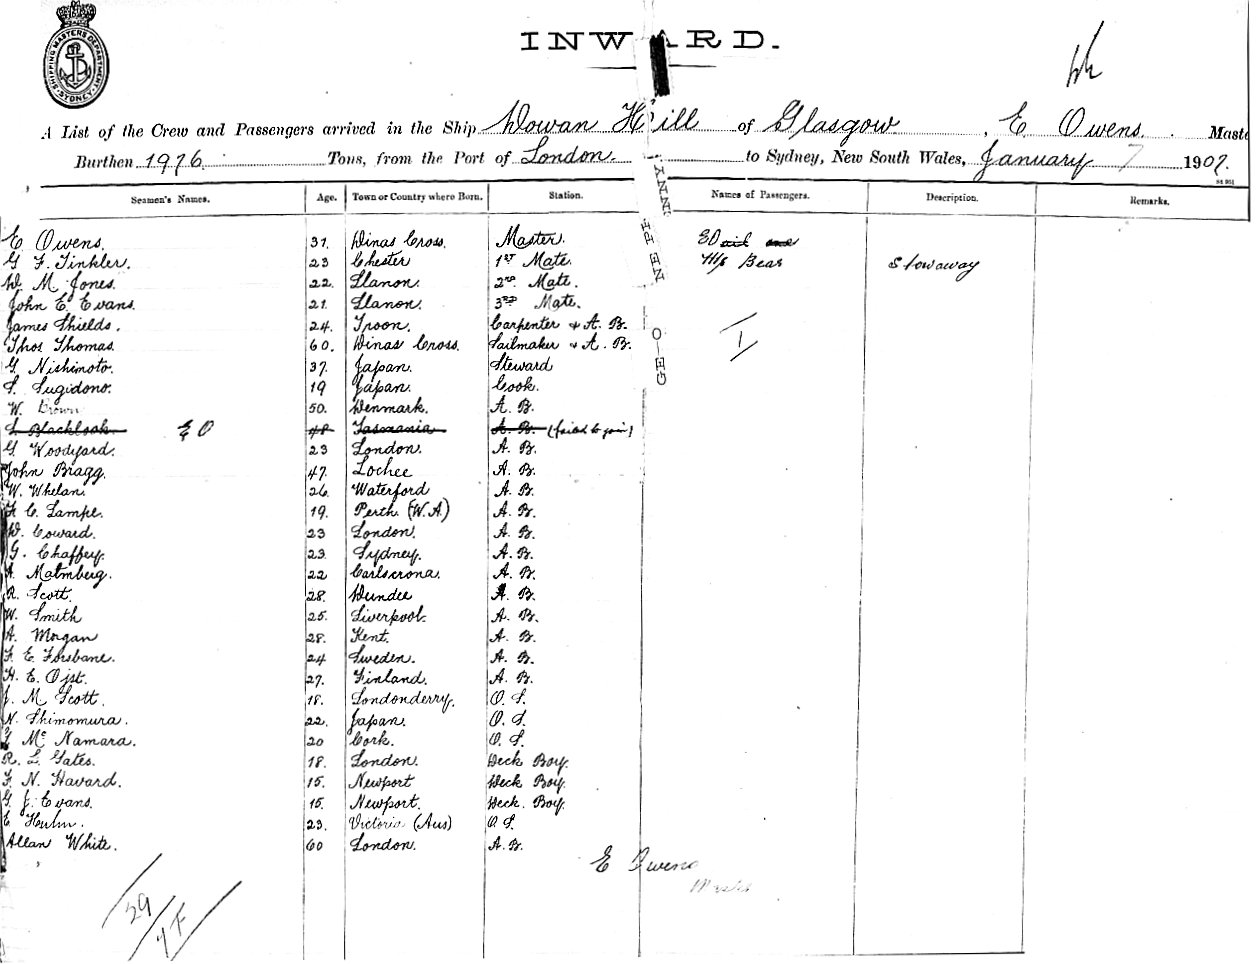 INWARD.
SHIPPING MASTERS DEPARTMENT SYDNEY
A List of the Crew and Passengers arrived in the Ship Dowan Hill of Glasgow, E Owens. Maste
Burthen 1976. Tons, from the Port of London. to Sydney, New South Wales, January 7 1907.
Seamen's Names. Age. Town or Country where Born. Station. Names of Passengers. Description. Remarks.
E Owens. 31. Dinas Cross. Master.
G F. Tinkler. 23 Chester 1ST Mate. Bear Stowaway
W M Jones. 22. Llanon. 2nd Mate.
John E. Evans. 21. Llanon. 3RD Mate.
James Shields. 24. Troon. Carpenter & A. B.
Thos Thomas. 60. Dinas Cross. Sailmaker & A. B.
G Nishimoto. 37. Japan. Steward
S. Sugidono. 19 Japan. Cook.
W. Brown 50. Denmark. A. B.
S. Blacklook EO 48 Tasmania A. B. (failed to join)
G Woodyard. 23 London. A. B.
John Bragg. 47. Lochee A. B.
W. Whelan. 26 Waterford A. B.
F C. Lampe. 19. Perth (W.A) A. B.
W. Coward. 23 London. A. B.
G. Chaffey. 23. Sydney. A. B.
A. Malmberg. 22 Carlscrona. A. B.
R. Scott. 28. Dundee A. B.
W. Smith 25. Liverpool. A. B.
A. Morgan 28. Kent. A. B.
F. E. Forsbane. 24 Sweden. A. B.
H. E. Ojst. 27. Finland. A. B.
J. M Scott. 18. Londonderry. O. S.
N. Shimomura. 22. Japan. O. S.
Mc Namara. 20 Cork. O. S.
R. L. Gates. 18. London. Deck Boy.
F. N. Havard. 15. Newport Deck Boy.
G. J. Evans. 15. Newport. Deck. Boy.
E 23. Victoria (Aus) O S.
Allan White. 60 London. A. B.
E Owens
Master
29